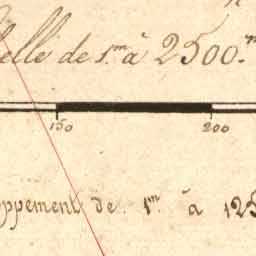 elle de 1.m à 2500.m
150 200
ppement de 1.m à 125